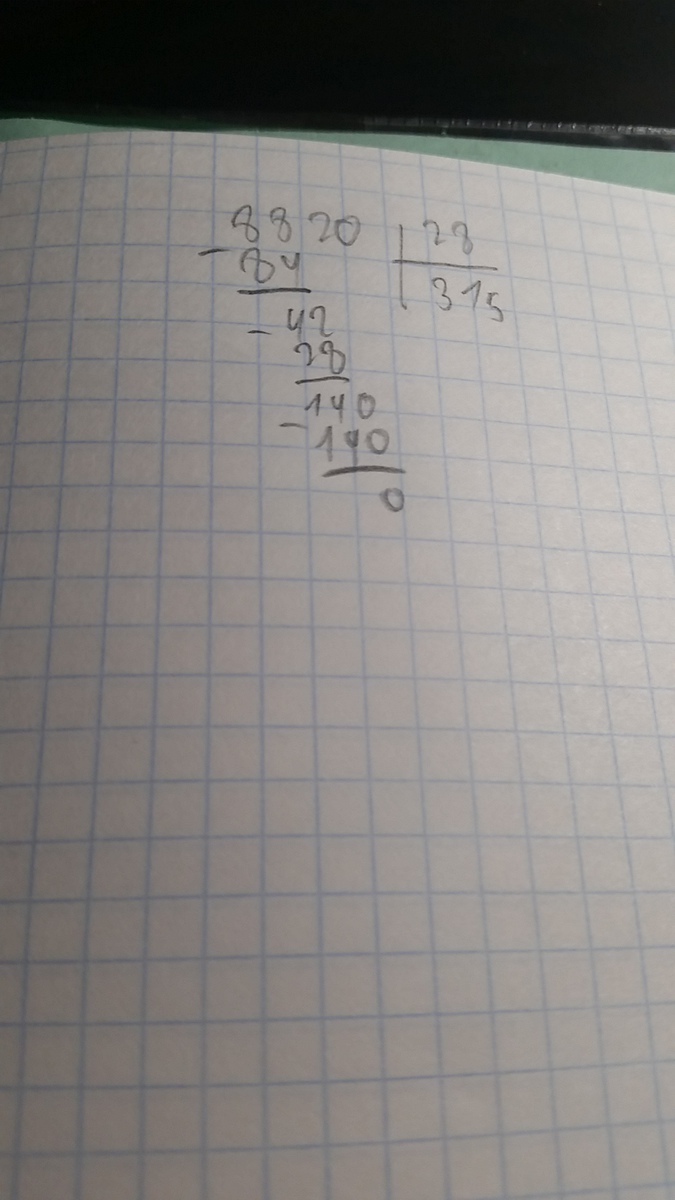 8820 | 28
- 84 | 315
- 42
28
140
- 140
0